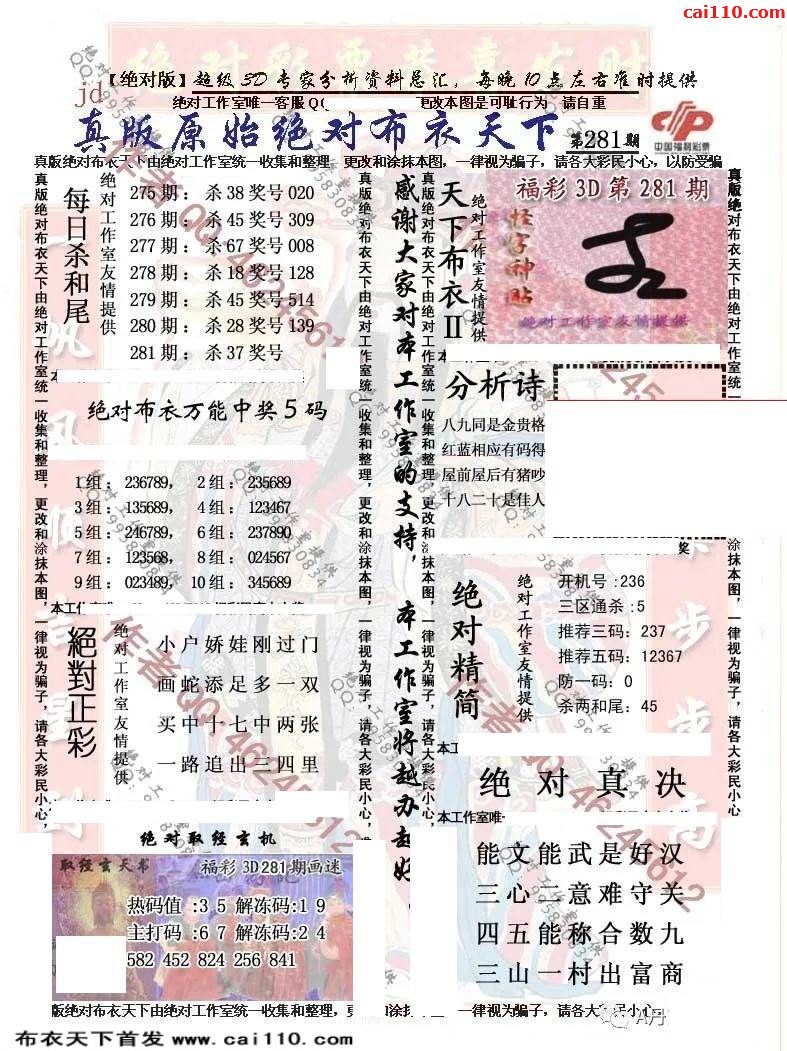 cai110.com
【绝对版】超级3D专家分析资料总汇，每晚10点左右准时提供
jd
绝对工作室唯一客服 Q(
更改本图是可耻行为 请自重
真版原始绝对布衣天下
第281期
中国福利彩票
真版绝对布衣天下由绝对工作室统一收集和整理，更改和涂抹本图，一律视为骗子，请各大彩民小心，以防受骗
每日杀和尾
绝对工作室友情提供
275期：杀38奖号020
276期：杀45奖号309
277期：杀67奖号008
278期：杀18奖号128
279期：杀45奖号514
280期：杀28奖号139
281期：杀37奖号
绝对布衣万能中奖5码
1组：236789， 2组：235689
3组：135689， 4组：123467
5组：246789， 6组：237890
7组：123568， 8组：024567
9组：023489， 10组：345689
絕對正彩
绝对工作室友情提供
小户娇娃刚过门
画蛇添足多一双
买中十七中两张
一路追出三四里
绝对取经玄机
取经玄天书
福彩3D281期画迷
热码值:35解冻码:19
主打码:67解冻码:24
582 452 824 256 841
感谢大家对本工作室的支持，本工作室将越办越好
天下布衣II
绝对工作室友情提供
福彩3D第281期
怪字神贴
绝对工作室友情提供
分析诗
八九同是金贵格
红蓝相应有码得
屋前屋后有猪吵
十八二十是佳人
绝对精简
绝对工作室友情提供
开机号:236
三区通杀:5
推荐三码:237
推荐五码:12367
防一码:0
杀两和尾:45
绝对真决
本工作室唯
能文能武是好汉
三心二意难守关
四五能称合数九
三山一村出富商
真版绝对布衣天下由绝对工作室统一收集和整理，更改和涂抹本图，一律视为骗子，请各大彩民小心
版绝对布衣天下由绝对工作室统一收集和整理，更
和涂抹
一律视为骗子，请各大彩民小心
A丹
布衣天下首发 www.cai110.com